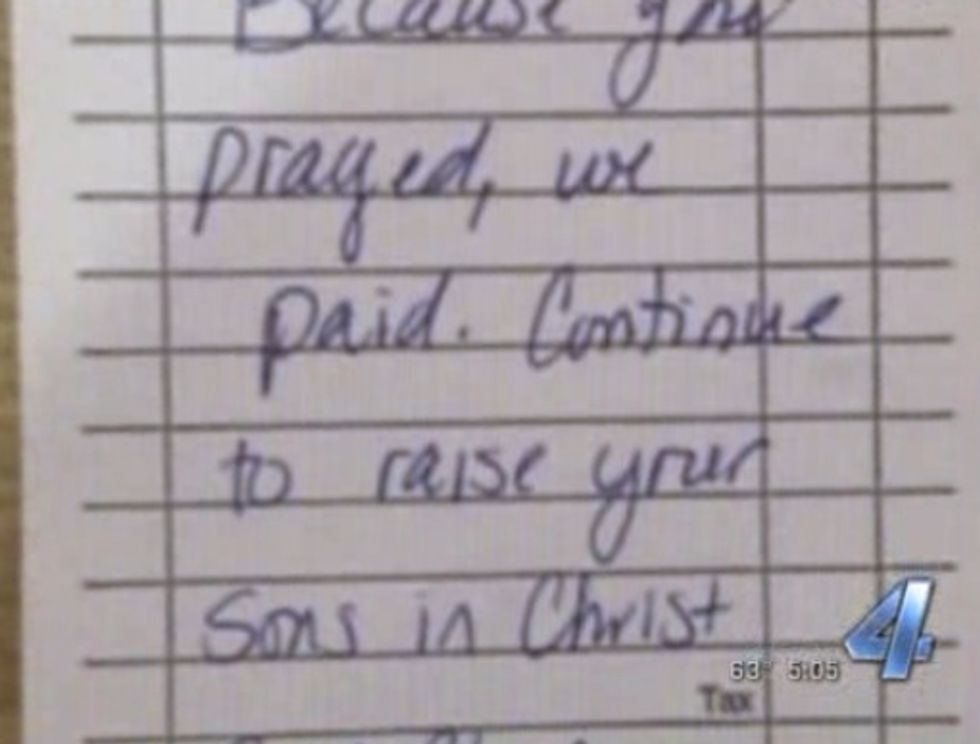 Because you
prayed, we
paid. Continue
to raise your
Sons in Christ
4
63° 5:05
Tax